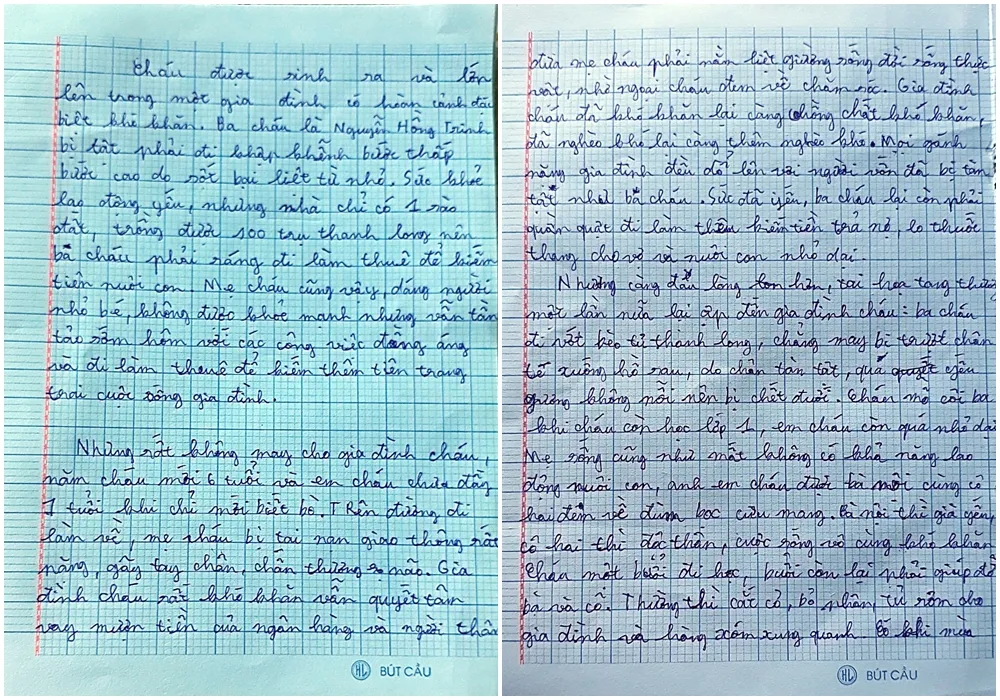 Cháu được sinh ra và lớn
lên trong một gia đình có hoàn cảnh đặc
biệt khó khăn. Ba cháu là Nguyễn Hồng Trinh
bị tật phải đi khập khễnh bước thấp
bước cao do sốt bại liệt từ nhỏ. Sức khỏe
lao động yếu, nhưng nhà chỉ có 1 sào
đất, trồng được 100 trụ thanh long nên
ba cháu phải ráng đi làm thuê để kiếm
tiền nuôi con. Mẹ cháu cũng vậy, dáng người
nhỏ bé, không được khỏe mạnh nhưng vẫn tần
tảo sớm hôm với các công việc đồng áng
và đi làm thuê để kiếm thêm tiền trang
trải cuộc sống gia đình.
Nhưng rất không may cho gia đình cháu,
năm cháu mới 6 tuổi và em cháu chưa đầy
1 tuổi khi chỉ mới biết bò. TRên đường đi
làm về, mẹ cháu bị tai nạn giao thông rất
nặng, gãy tay chân, chấn thương não. Gia
đình cháu rất khó khăn vẫn quyết tâm
vay mượn tiền của ngân hàng và người thân
BÚT CẦU
đưa mẹ cháu phải nằm liệt giường sống đời sống thực
vật, nhờ ngoại cháu đem về chăm sóc. Gia đình
cháu đã khó khăn lại càng chồng chất khó khăn,
đã nghèo khó lại càng thêm nghèo khó. Mọi gánh
nặng gia đình đều đổ lên vai người vốn đã bị tàn
tật như ba cháu. Sức đã yếu, ba cháu lại còn phải
quần quật đi làm thêm kiếm tiền trả nợ, lo thuốc
thang cho vợ và nuôi con nhỏ dại.
Nhưng càng đau lòng hơn, tai họa tang thương
một lần nữa lại ập đến gia đình cháu: ba cháu
đi vớt bèo tủ thanh long, chẳng may bị trượt chân
té xuống hồ sâu, do chân tàn tật, quá yếu
gượng không nổi nên bị chết đuối. Cháu mồ côi ba
khi cháu còn học lớp 1, em cháu còn quá nhỏ dại
Mẹ sống cũng như mất không có khả năng lao
động nuôi con, anh em cháu được bà nội cùng cô
hai đem về đùm bọc cưu mang. Bà nội thì già yếu,
cô hai thì độc thân, cuộc sống vô cùng khó khăn
Cháu một buổi đi học, buổi còn lại phải giúp đỡ
bà và cô. Thường thì cắt cỏ, bỏ phân, tủ rơm cho
gia đình và hàng xóm xung quanh. Có khi mùa
BÚT CẦU